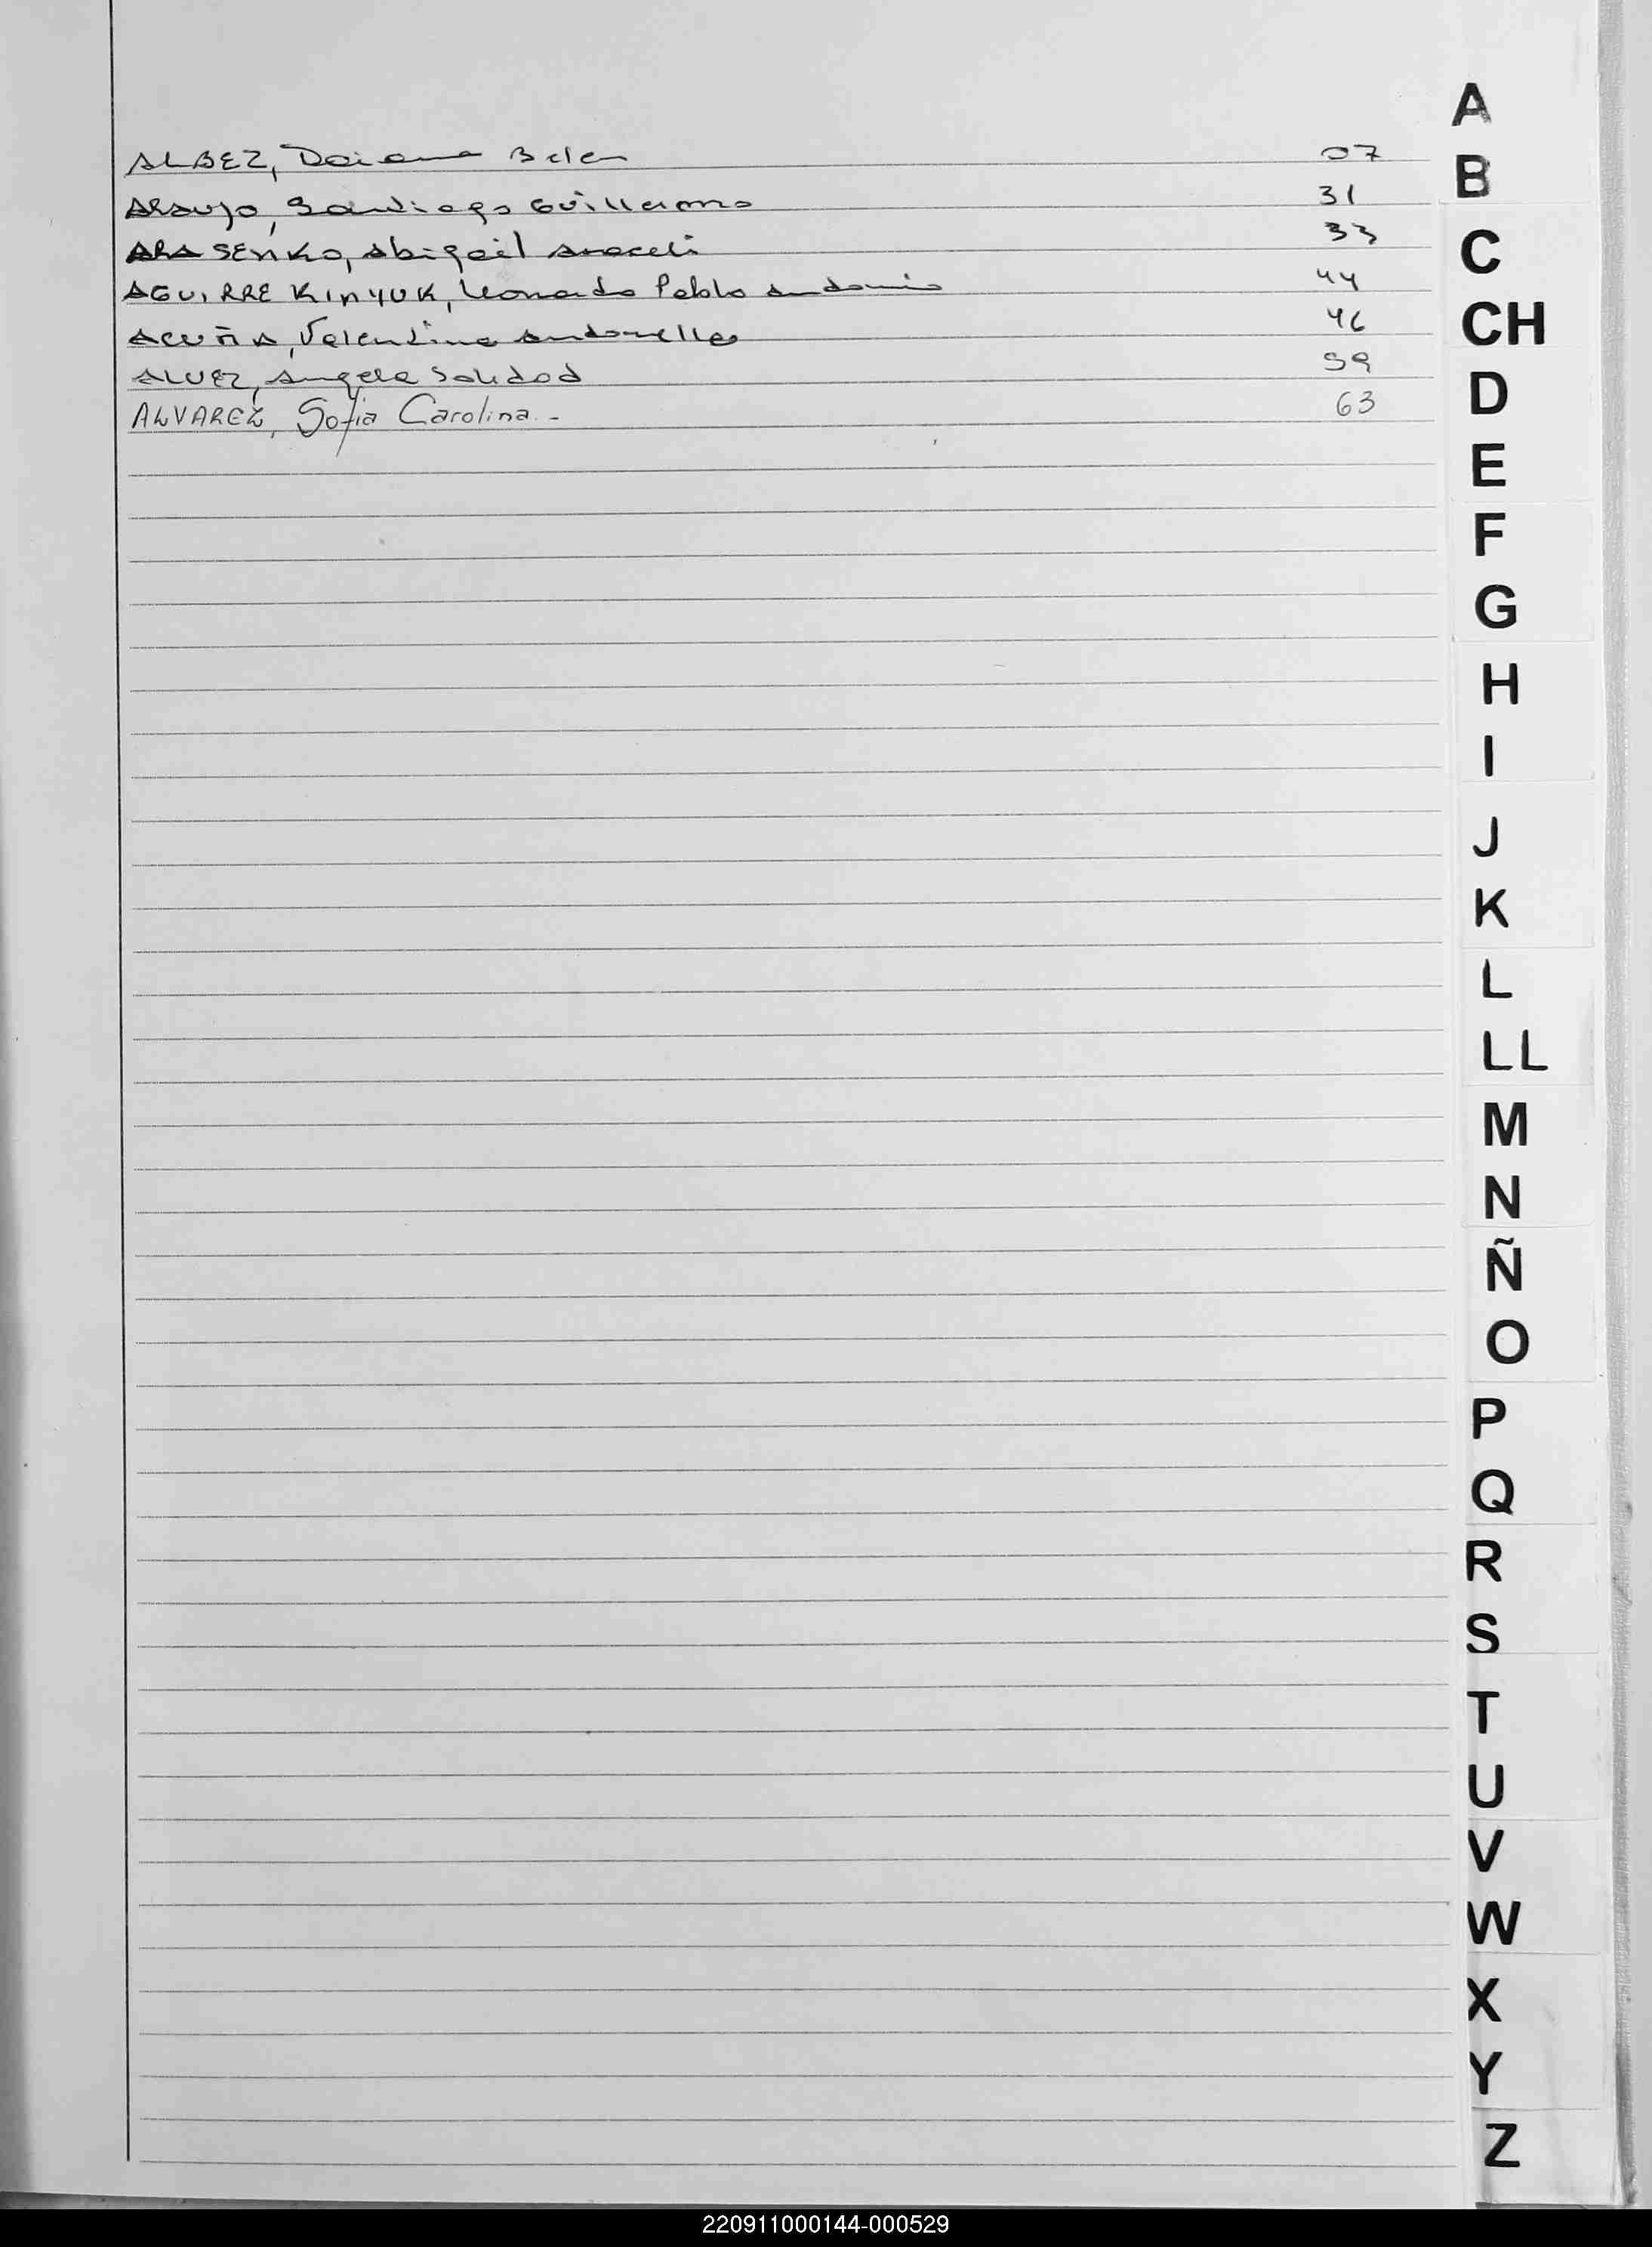 ALBEZ, Daiana Belen 07
ARAUJO, Santiago Guillermo 31
ARASENKO, Abigail Araceli 33
AGUIRRE KINYUK, Leonardo Pablo Antonio 44
ACUÑA, Valentina Antonella 46
ALVEZ, Angela Soledad 59
ALVAREZ, Sofia Carolina.- 63
A
B
C
CH
D
E
F
G
H
I
J
K
L
LL
M
N
Ñ
O
P
Q
R
S
T
U
V
W
X
Y
Z
220911000144-000529